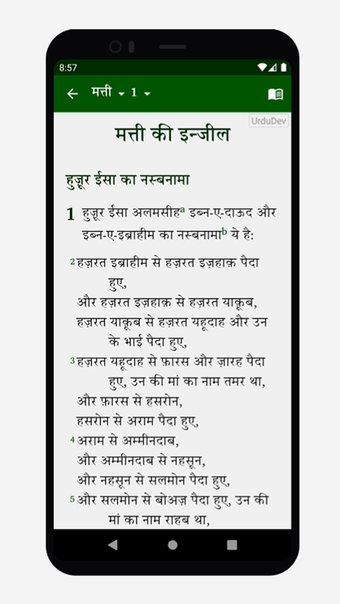 8:57
मत्ती 1
UrduDev
मत्ती की इन्जील
हुज़ूर ईसा का नस्बनामा
1 हुज़ूर ईसा अलमसीहa इब्न-ए-दाऊद और
इब्न-ए-इब्राहीम का नस्बनामाb ये है:
2 हज़रत इब्राहीम से हज़रत इज़हाक़ पैदा
हुए,
और हज़रत इज़हाक़ से हज़रत याक़ूब,
हज़रत याक़ूब से हज़रत यहूदाह और उन
के भाई पैदा हुए,
3 हज़रत यहूदाह से फ़ारस और ज़ारह पैदा
हुए, उन की मां का नाम तमर था,
और फ़ारस से हसरोन,
हसरोन से अराम पैदा हुए,
4 अराम से अम्मीनदाब,
और अम्मीनदाब से नहसून,
और नहसून से सलमोन पैदा हुए,
5 और सलमोन से बोअज़ पैदा हुए, उन की
मां का नाम राहब था,